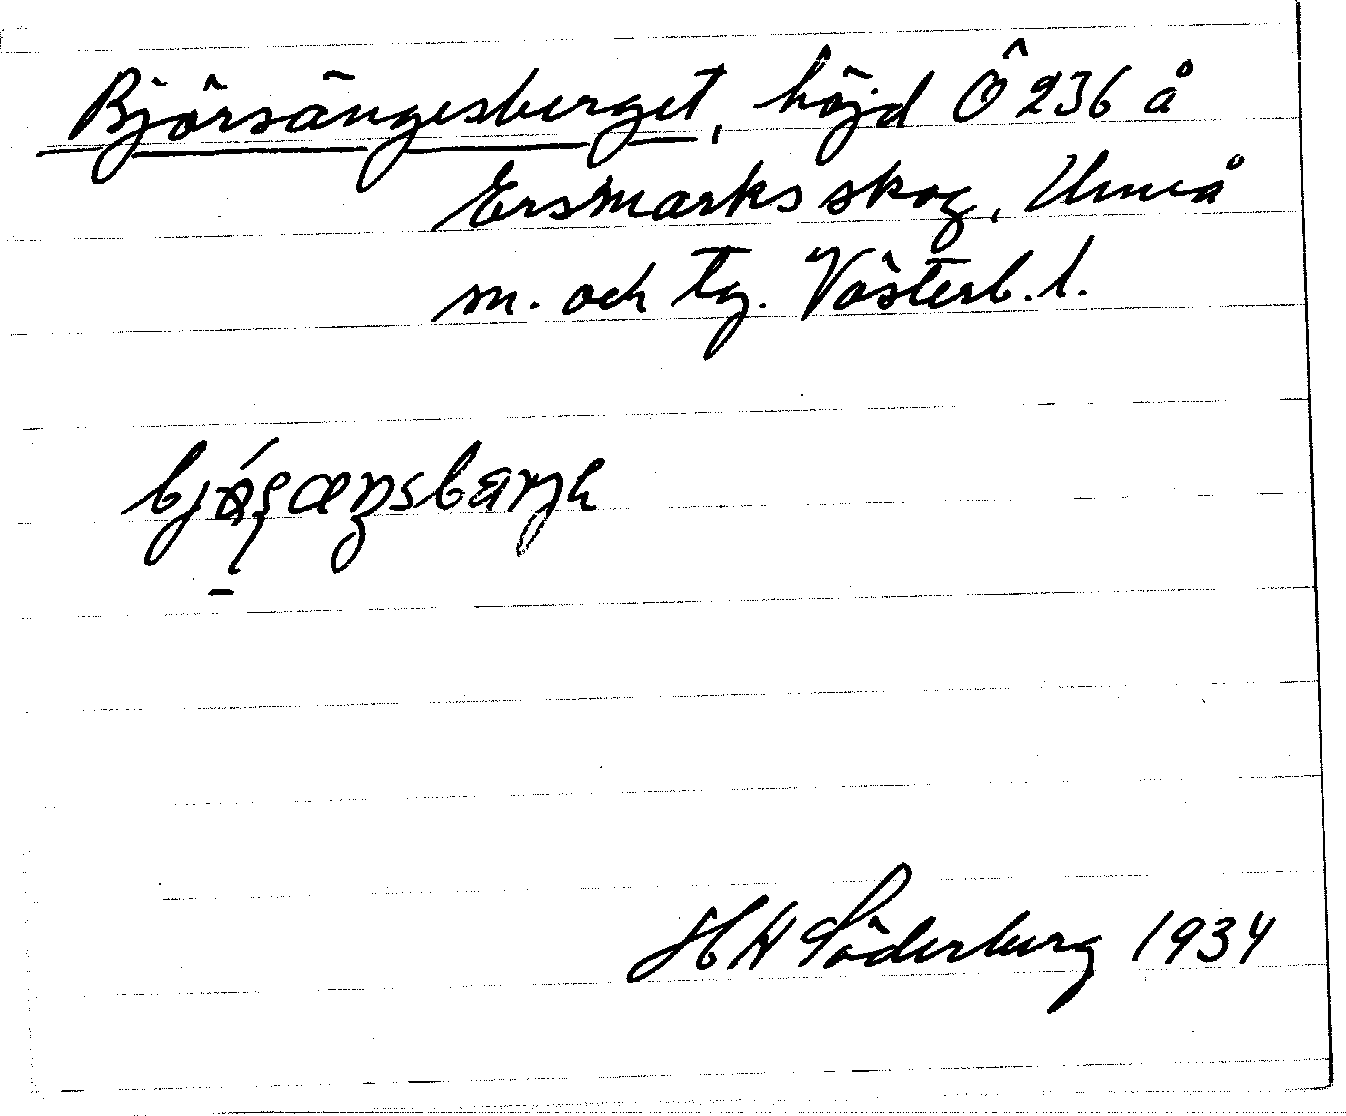 Björsängesberget, höjd Ö 236 å
Ersmarks skog, Umeå
m. och tg. Västerb. l.
H N Söderberg 1934